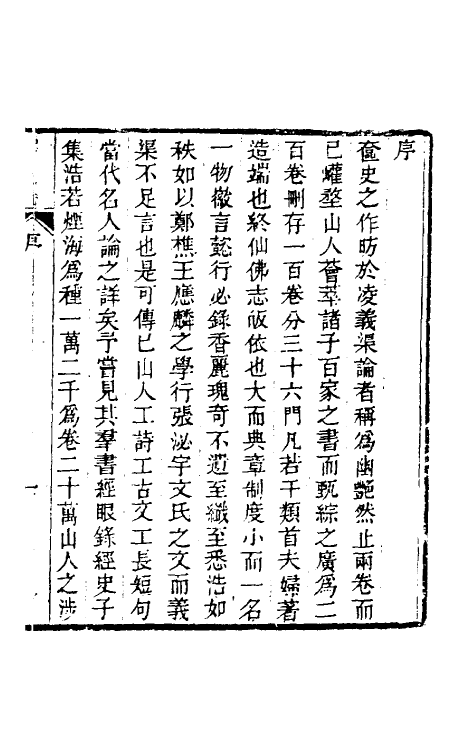 序
奩史之作昉於凌義渠論者稱爲幽艷然止兩卷而
已㬉堥山人薈萃諸子百家之書而甄綜之廣爲二
百卷刪存一百卷分三十六門凡若干類首夫婦著
造端也終仙佛志皈依也大而典章制度小而一名
一物徽言懿行必錄香麗瑰奇不遺至纖至悉浩如
秩如以鄭樵王應麟之學行張泌宇文氏之文而義
渠不足言也是可傳已山人工詩工古文工長短句
當代名人論之詳矣予嘗見其羣書經眼錄經史子
集浩若煙海爲種一萬二千爲卷二十萬山人之涉
序
一